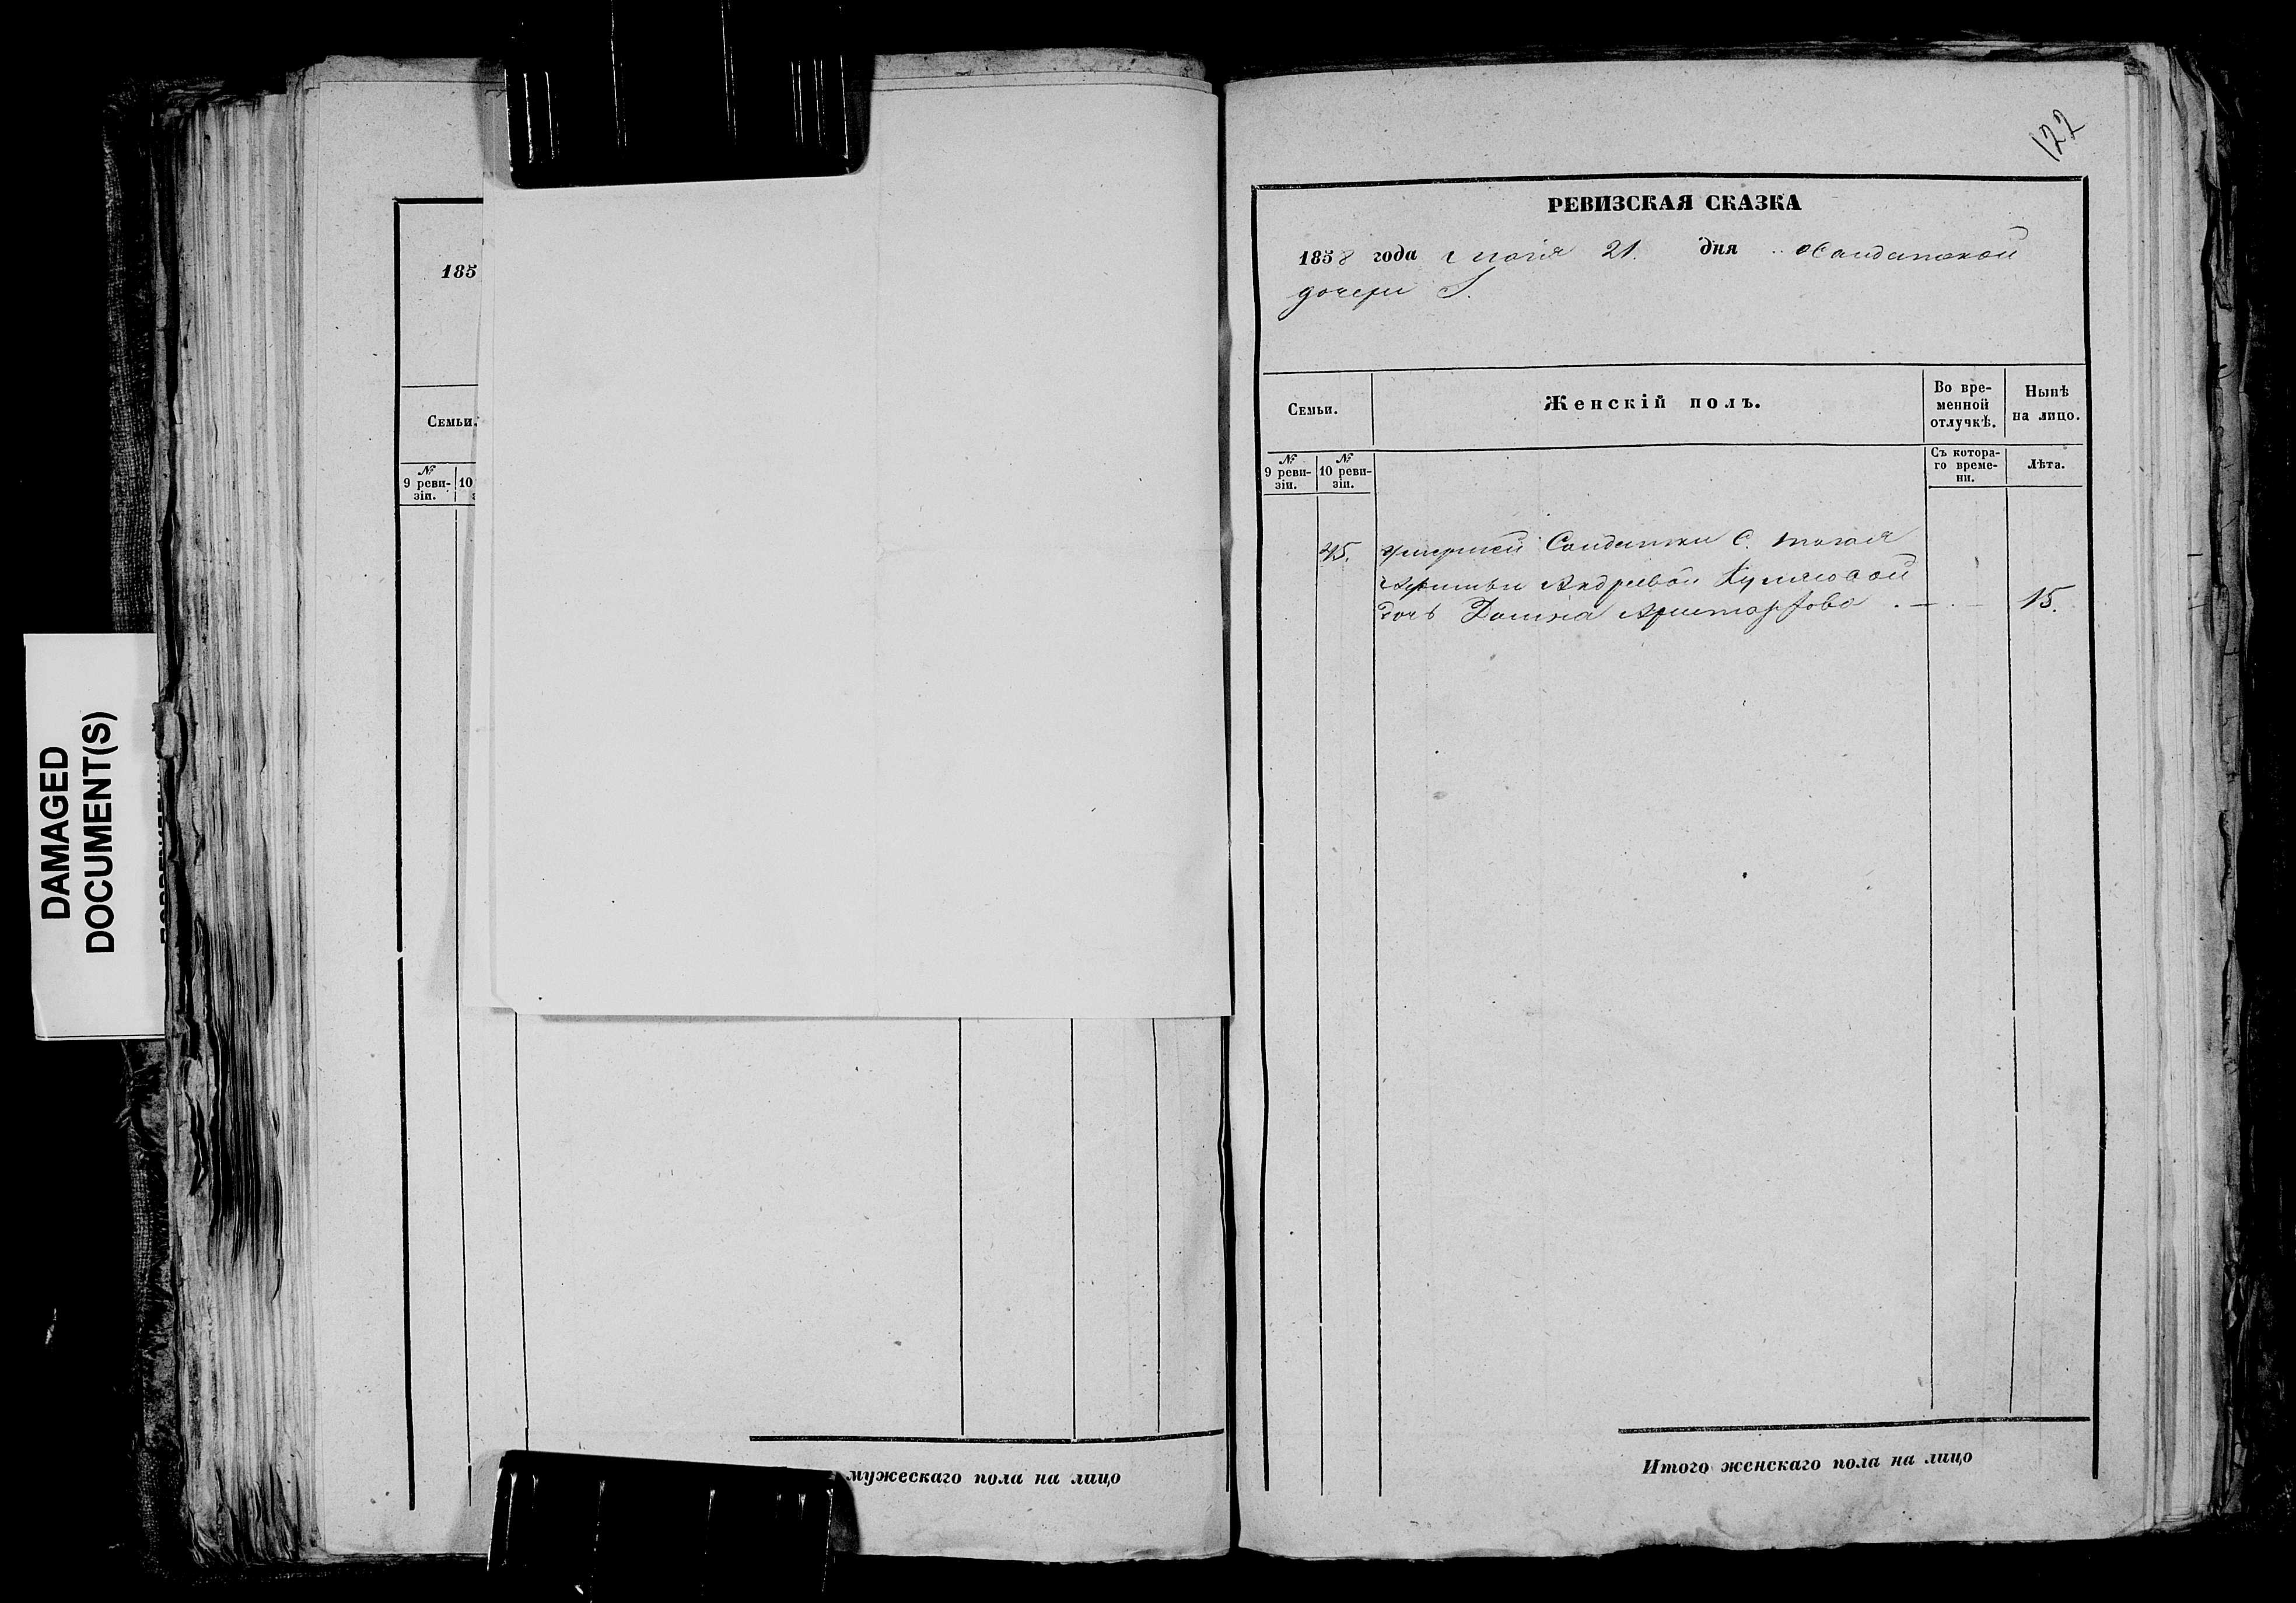 122
185
Семьи.
№
9 реви-
зіи.
10
мужескаго пола на лицо
DAMAGED
DOCUMENT(S)
РЕВИЗСКАЯ СКАЗКА
1858 года 21. дня Солдатской
дочери
Семьи.
Женскій полъ.
Во вре-
менной
отлучкѣ.
Нынѣ
на лицо.
№
9 реви-
зіи.
№
10 реви-
зіи.
Съ котора-
го време-
ни.
Лѣта.
45. умершей Солдатки С.
Андреевой
дочь 15.
Итого женскаго пола на лицо